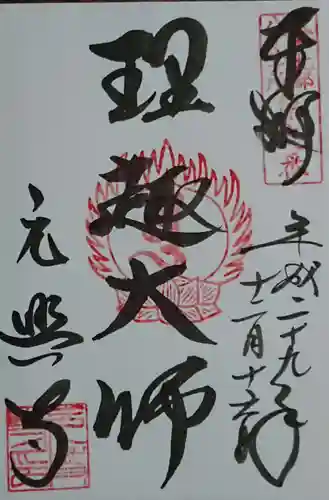 奉拝
平成二十九年
十二月十六日
理趣大師
元興寺